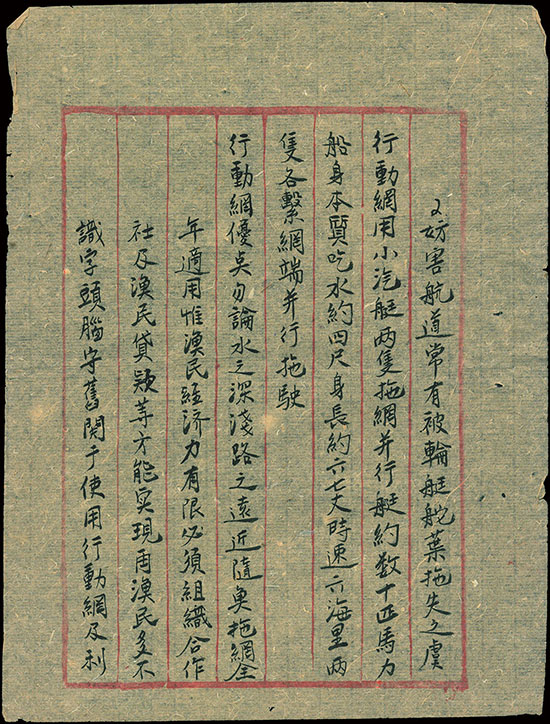 2妨害航道常有被輪艇舵葉拖失之虞
行動網用小汽艇两隻拖網并行艇約数十匹馬力
船身本質吃水約四尺身長約六七丈時速六海里两
隻各繫網端并行拖駛
行動網優点勿論水之深淺路之遠近隨奐拖網全
年適用惟漁民経済力有限必須組織合作
社及漁民貸款等方能实現因漁民多不
識字頭腦守舊関于使用行動網及利